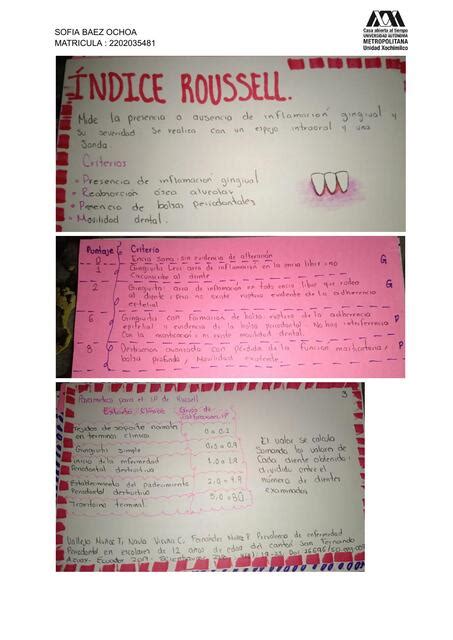 SOFIA BAEZ OCHOA
MATRICULA : 2202035481
Casa abierta al tiempo
UNIVERSIDAD AUTÓNOMA
METROPOLITANA
Unidad Xochimilco
ÍNDICE ROUSSELL.
Mide la presencia o ausencia de inflamacion gingival y
su severidad. Se realiza con un espejo intraoral y una
Sonda.
Criterios
• Presencia de inflamacion gingival
• Reabsorción ósea alveolar
• Presencia de bolsas periodontales
• Movilidad dental.
Puntaje Criterio
0 Encia Sana: sin evidencia de alteración
1 Gingivitis Leve area de inflamacion en la encia libre no G
Circunscribe al diente
2 Gingivitis: area de inflamacion en toda encia libre que rodea G
al diente, pero no existe ruptura evidente de la adherencia
epitelial
6 Gingivitis con formacion de bolsa ruptura de la adherencia P
epitelial y evidencia de la bolsa periodontal. No hay interferencia
con la masticación ni existe movilidad dental.
8 Destruccion avanzada con Pérdida de la funcion masticatoria, P
bolsa profunda, Movilidad existente.
3
Parametros para el IP de Russell
Estadio Clínico Grupo de
Tejidos de soporte normales 0 a 0.2
en terminos clinicos
Gingivitis simple 0.3 a 0.9
Inicio de la enfermedad 1.0 a 1.9
Periodontal destructiva
Establecimiento del padecimiento 2.0 a 4.9
Periodontal destructivo
Trastorno terminal. 5.0 a 8.0
El valor se calcula
Sumando los valores de
Cada diente obtenido y
dividido entre el
número de dientes
examinados
Vallejo Muñoz T, Navia Viviana C, Fernández Muñoz P. Prevalencia de enfermedad
Periodontal en escolares de 12 años de edad del canton San Fernando
Azuay- Ecuador 2017.